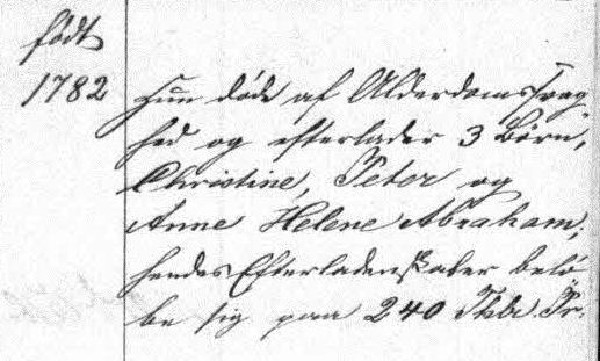 født
1782
Hun døde af Alderdomssvag
hed og efterlader 3 Børn,
Christine, Peter og
Anne Helene Abraham;
hendes Efterladenskaber belø
be sig paa 240 Thlr. Pr.